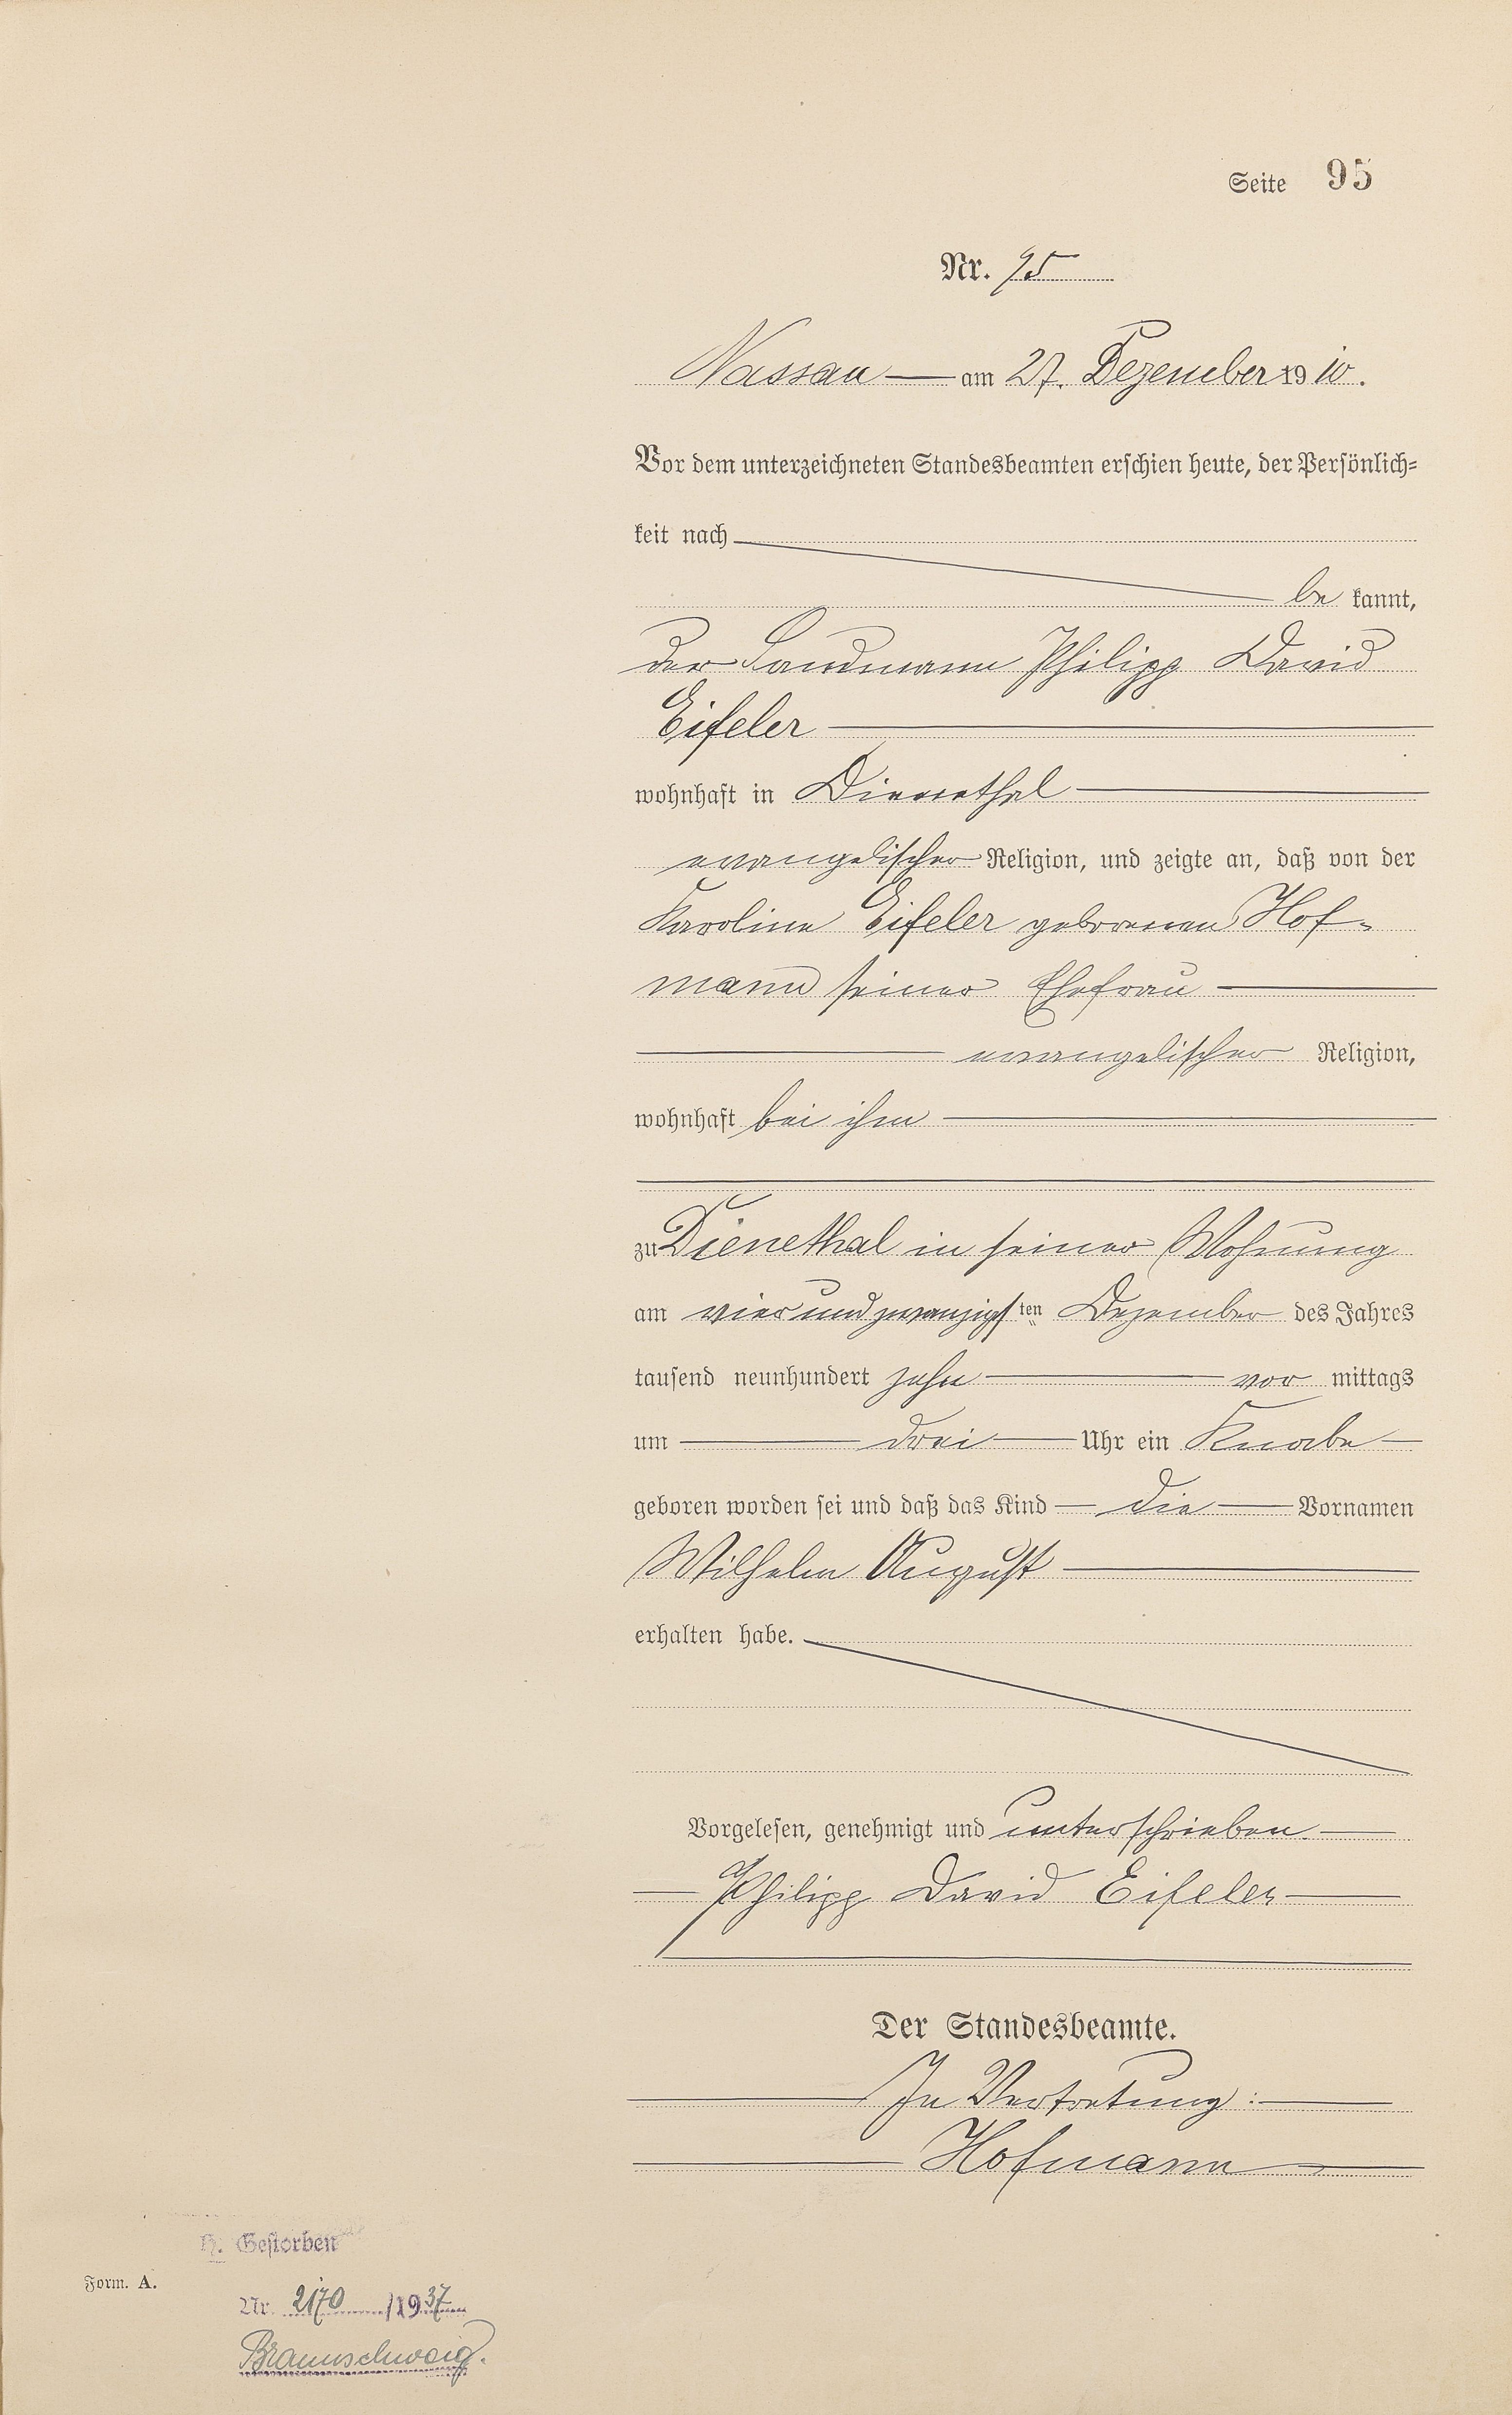 Seite 95
Nr. 95
Nassau — am 27. Dezember 1910.
Vor dem unterzeichneten Standesbeamten erschien heute, der Persönlich-
keit nach
be kannt,
der Landmann Philipp David
Eifeler
wohnhaft in Dienethal
evangelischer Religion, und zeigte an, daß von der
Karoline Eifeler geborenen Hof-
mann seiner Ehefrau
evangelischer Religion,
wohnhaft bei ihm
zu Dienethal in seiner Wohnung
am vierundzwanzigsten Dezember des Jahres
tausend neunhundert zehn — vor mittags
um — drei — Uhr ein Knabe
geboren worden sei und daß das Kind — die — Vornamen
Wilhelm August
erhalten habe.
Vorgelesen, genehmigt und unterschrieben
Philipp David Eifeler
Der Standesbeamte.
In Vertretung:
Hofmann
H. Gestorben
Form. A.
Nr. 2170 /1937
Braunschweig.